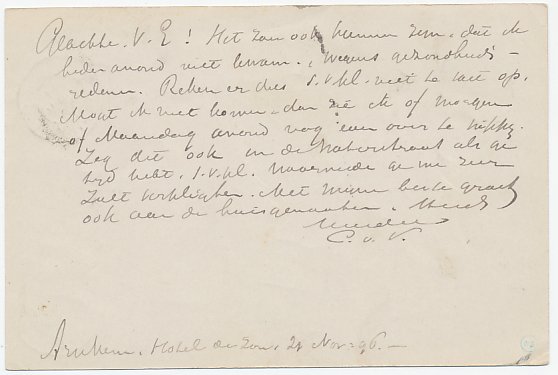 Geachte V. E! Het zou ook kunnen zijn, dat ik
heden avond niet kwam, wegens gezondheids-
redenen. Reken er dus s.v.pl. niet te vast op.
Mogt ik niet komen, dan zie ik of morgen
of Maandag avond nog even over te wippen.
Zeg dit ook in de straat als ge
tyd hebt. s.v.pl. waarmede ge me zeer
zult verplichten. Met mijne beste groet
ook aan de huisgenooten.
C. v. V.
Arnhem. Hotel de Zon. 21 Nov. 96.—